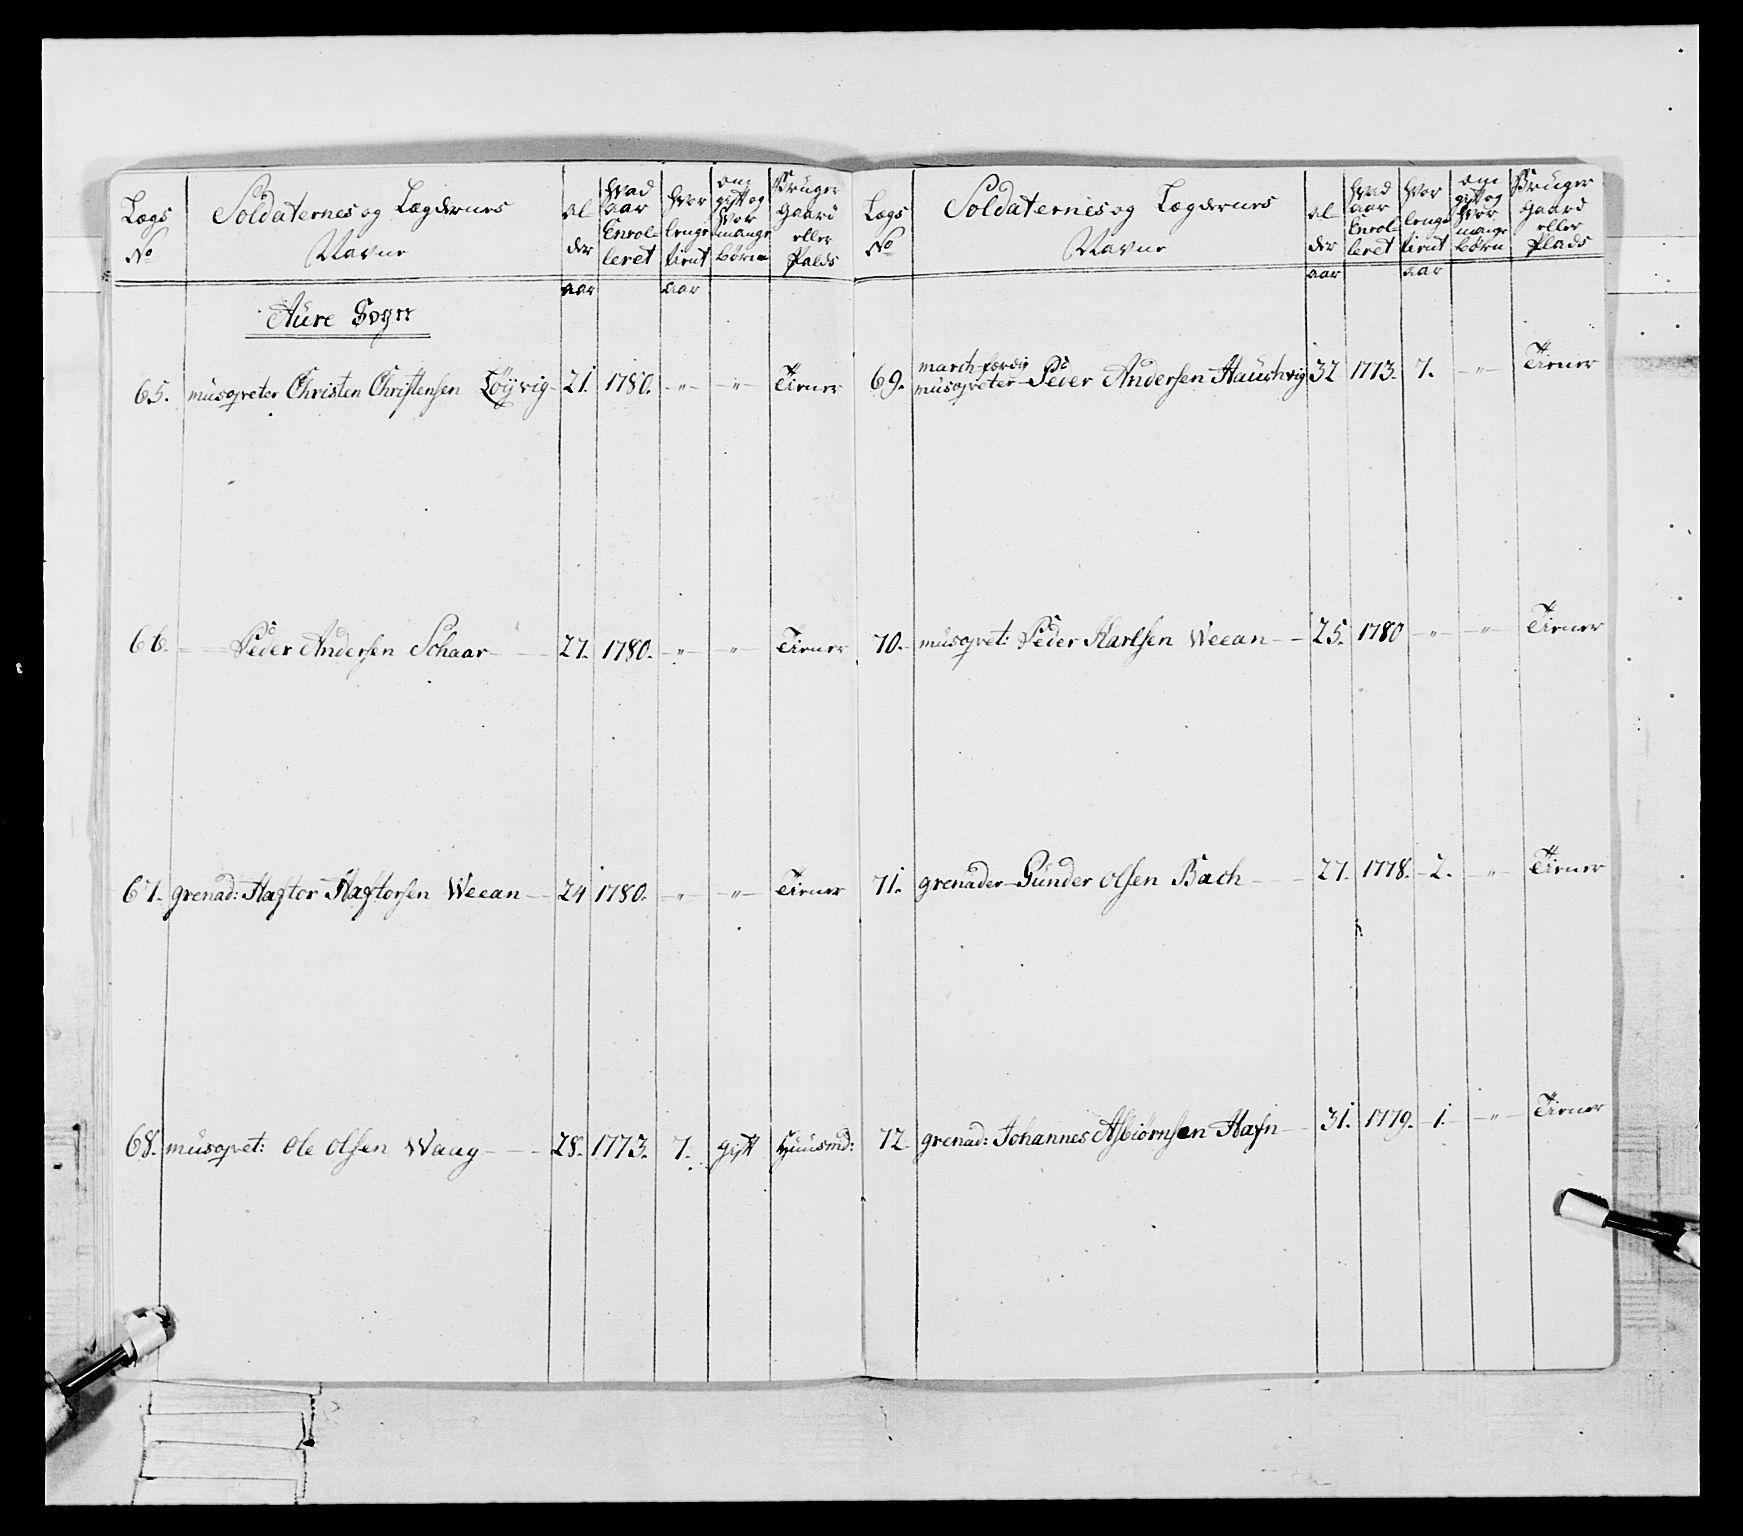 Lægs No | Soldaternes og Lægdernes Navne | al der | hvad aar Enrol leret | hvor lenge tient | om gift og hvor mange børn | Bruger Gaard eller Palds
aar | aar
Aure Sogn
65. musqveter Christen Christensen Løyvig 21. 1780. " " Tiener
66. Peder Andersen Schaar 27. 1780. " " Tiener
67. grenad: Haftor Haftorsen Weean 24 1780. " " Tiener
68. musqvet: Ole Olsen Waag 28. 1773. 7. gift Huusmd:
Lægs No | Soldaternes og Lægdernes Navne | al der | hvad aar Enrol leret | hvor lenge tient | om gift og hvor mange børn | Bruger Gaard eller Plads
aar | aar
march færdig
69. musqveter Peder Andersen Haushvig 32 1773. 7. " Tiener
70. musqvet: Peder Karlsen Weean 25. 1780 " " Tiener
71. grenader Gunder Olsen Bach 27. 1778. 2. " Tiener
72 grenad: Johannes Asbiørnsen Hafn 31. 1779. 1. " Tiener